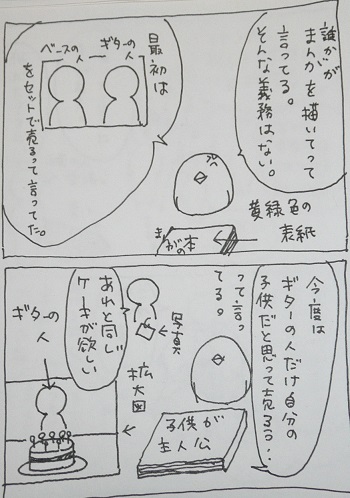 誰かが
まんがを描いてって
言ってる。
そんな義務はない。
最初は
ベースの人
ギターの人
をセットで売るって言ってた。
黄緑色の
表紙
まんがの本
今度は
ギターの人だけ自分の
子供だと思って売るう‥
って言っ
てる。
写真
あれと同じ
ケーキが欲しい
ギターの
人
拡大図
子供が
主人公